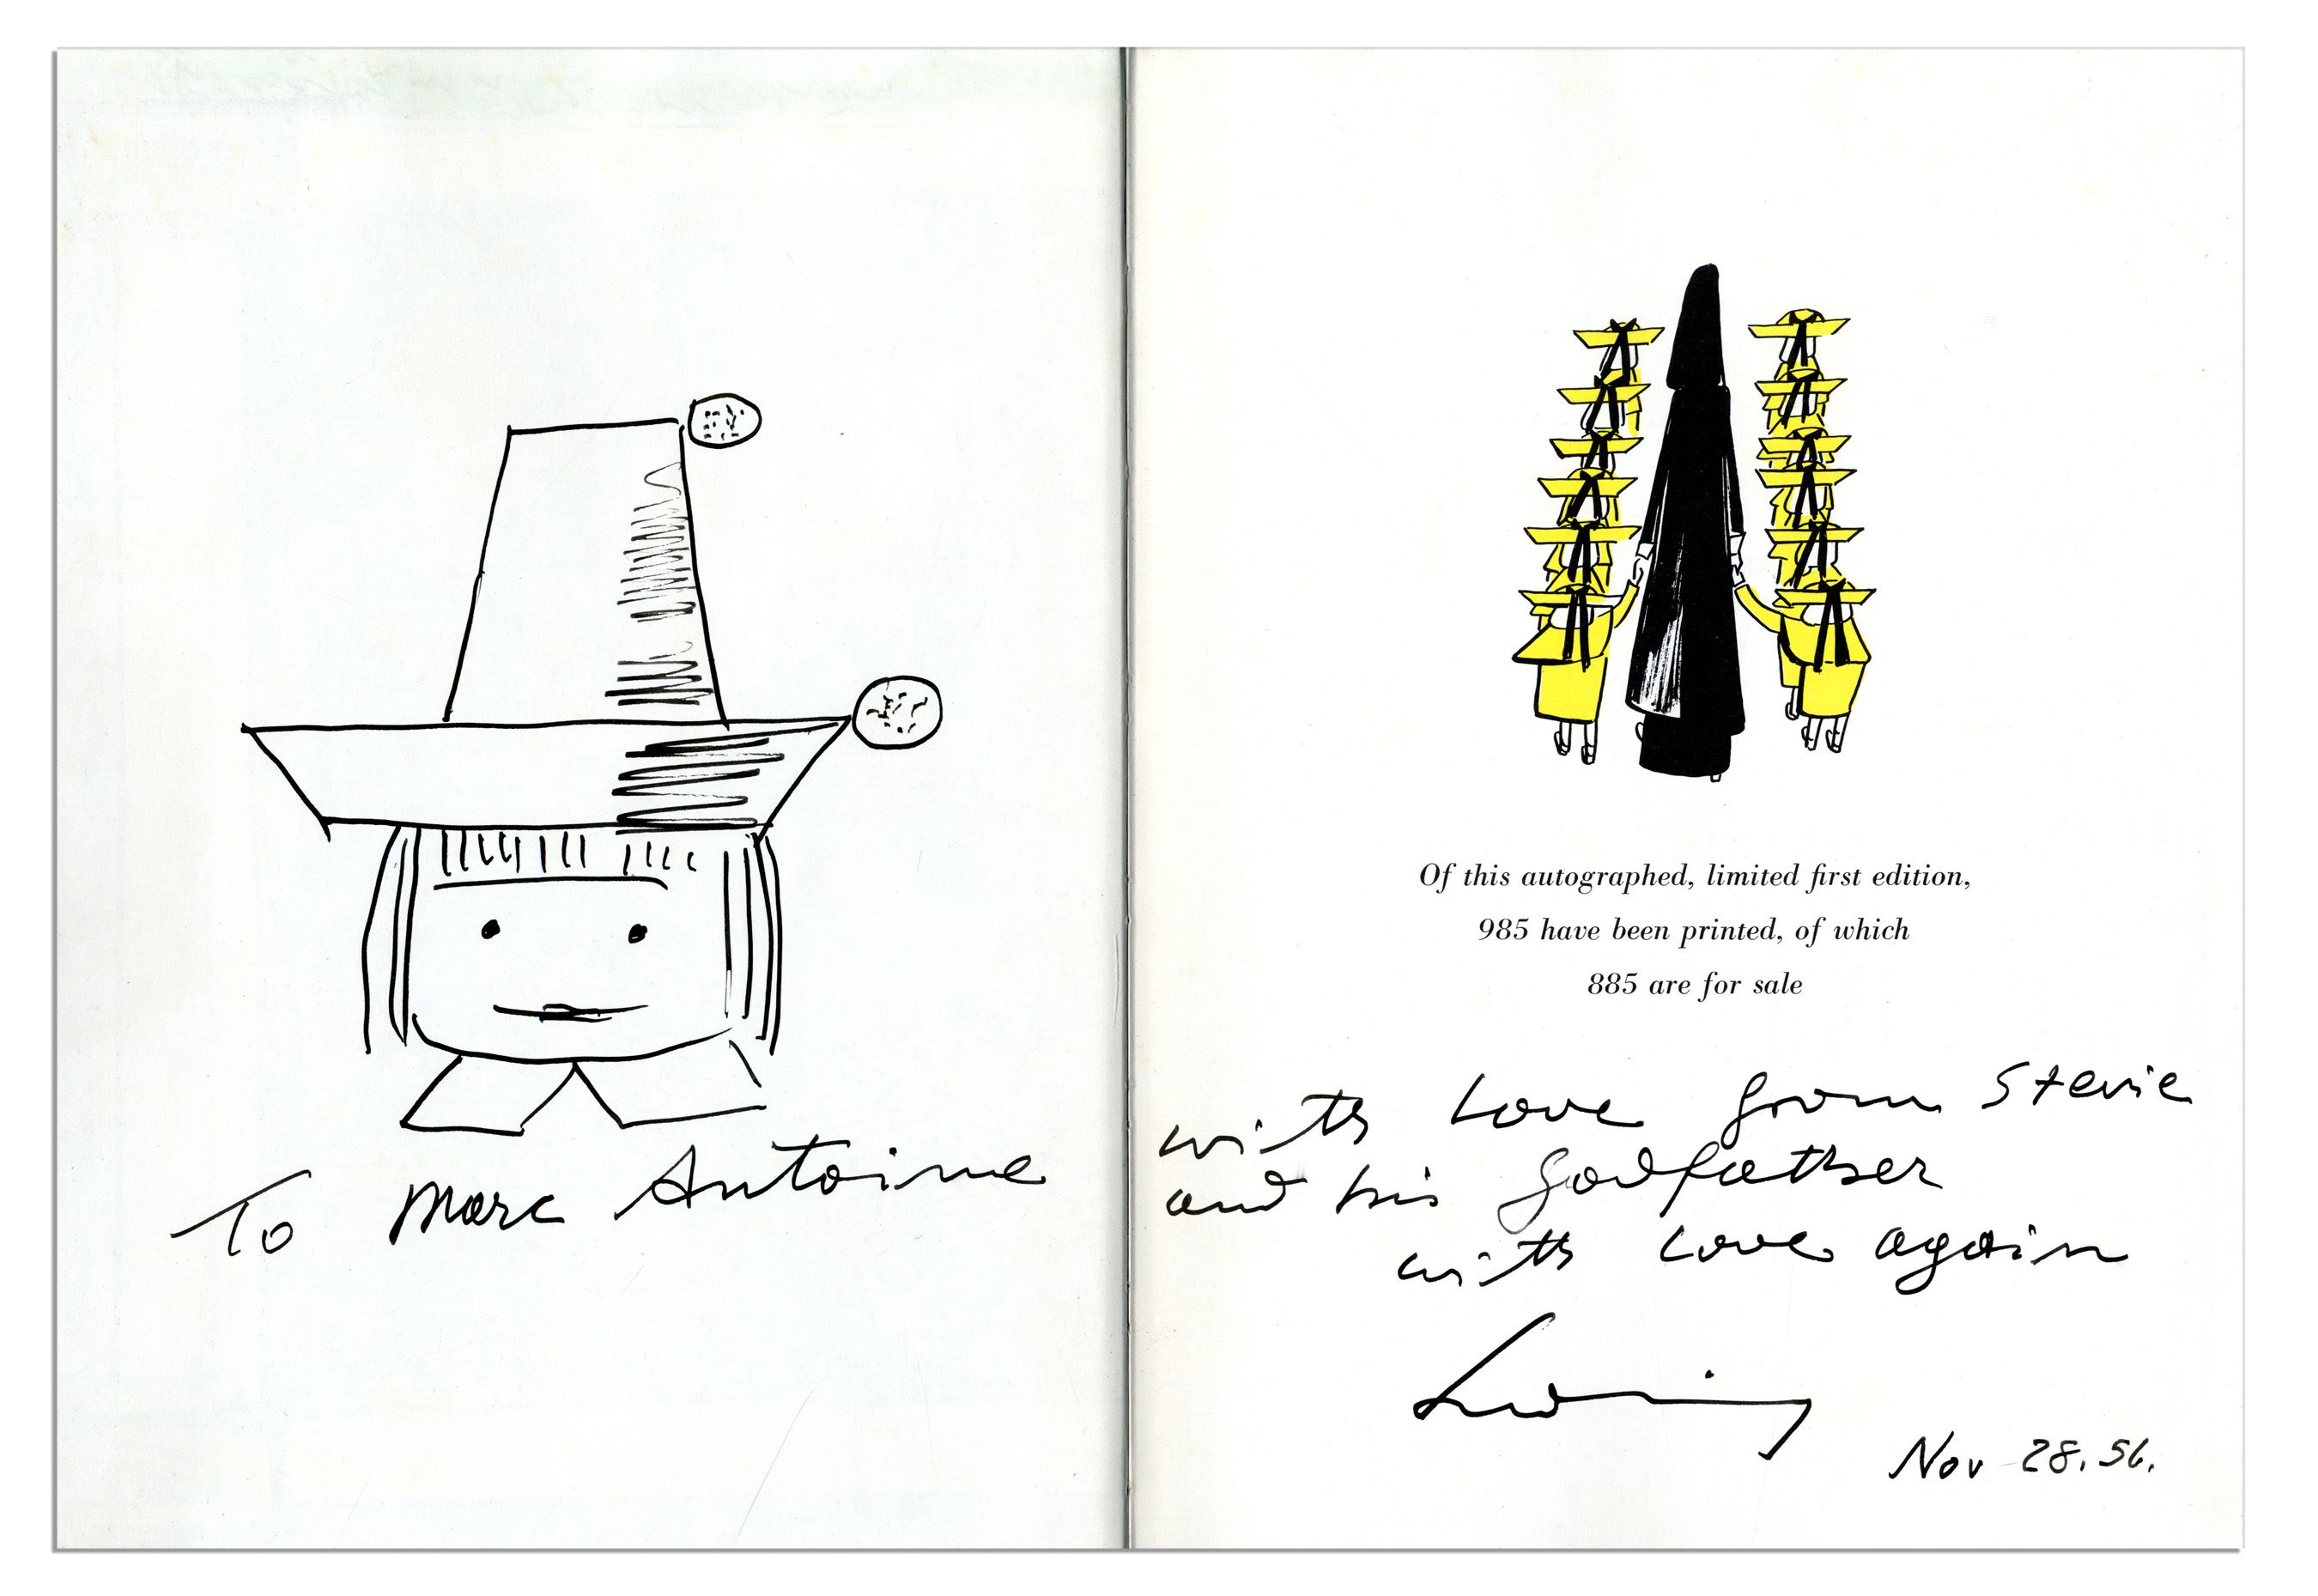 To Marc Antoine
Of this autographed, limited first edition,
985 have been printed, of which
885 are for sale
with love from Stevie
and his Godfather
with love again
Ludwig
Nov 28. 56.